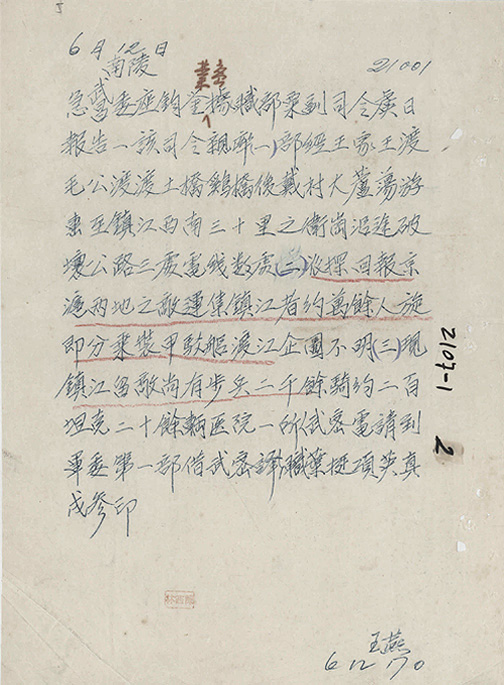 6月12日
南陵
21001
葉吾
急武昌委座鈞鑒據職部粟副司令虞日
報告一該司令親率(一)部經王家王渡
毛公渡渡土橋鷄橋後戴村大蘆蕩游
擊至鎮江西南三十里之衛崗沿途破
壞公路三處電綫數處(二)派探回報京
滬两地之敵運集鎮江者約萬餘人旋
即分乘裝甲敵艇渡江企圖不明(三)現
鎮江留敵尚有步兵二千餘騎約二百
坦克二十餘輛医院一所武密電請到
軍委第一部借武密譯職葉挺項英真
戌參印
2107-1
2
王燕
6.12 1770